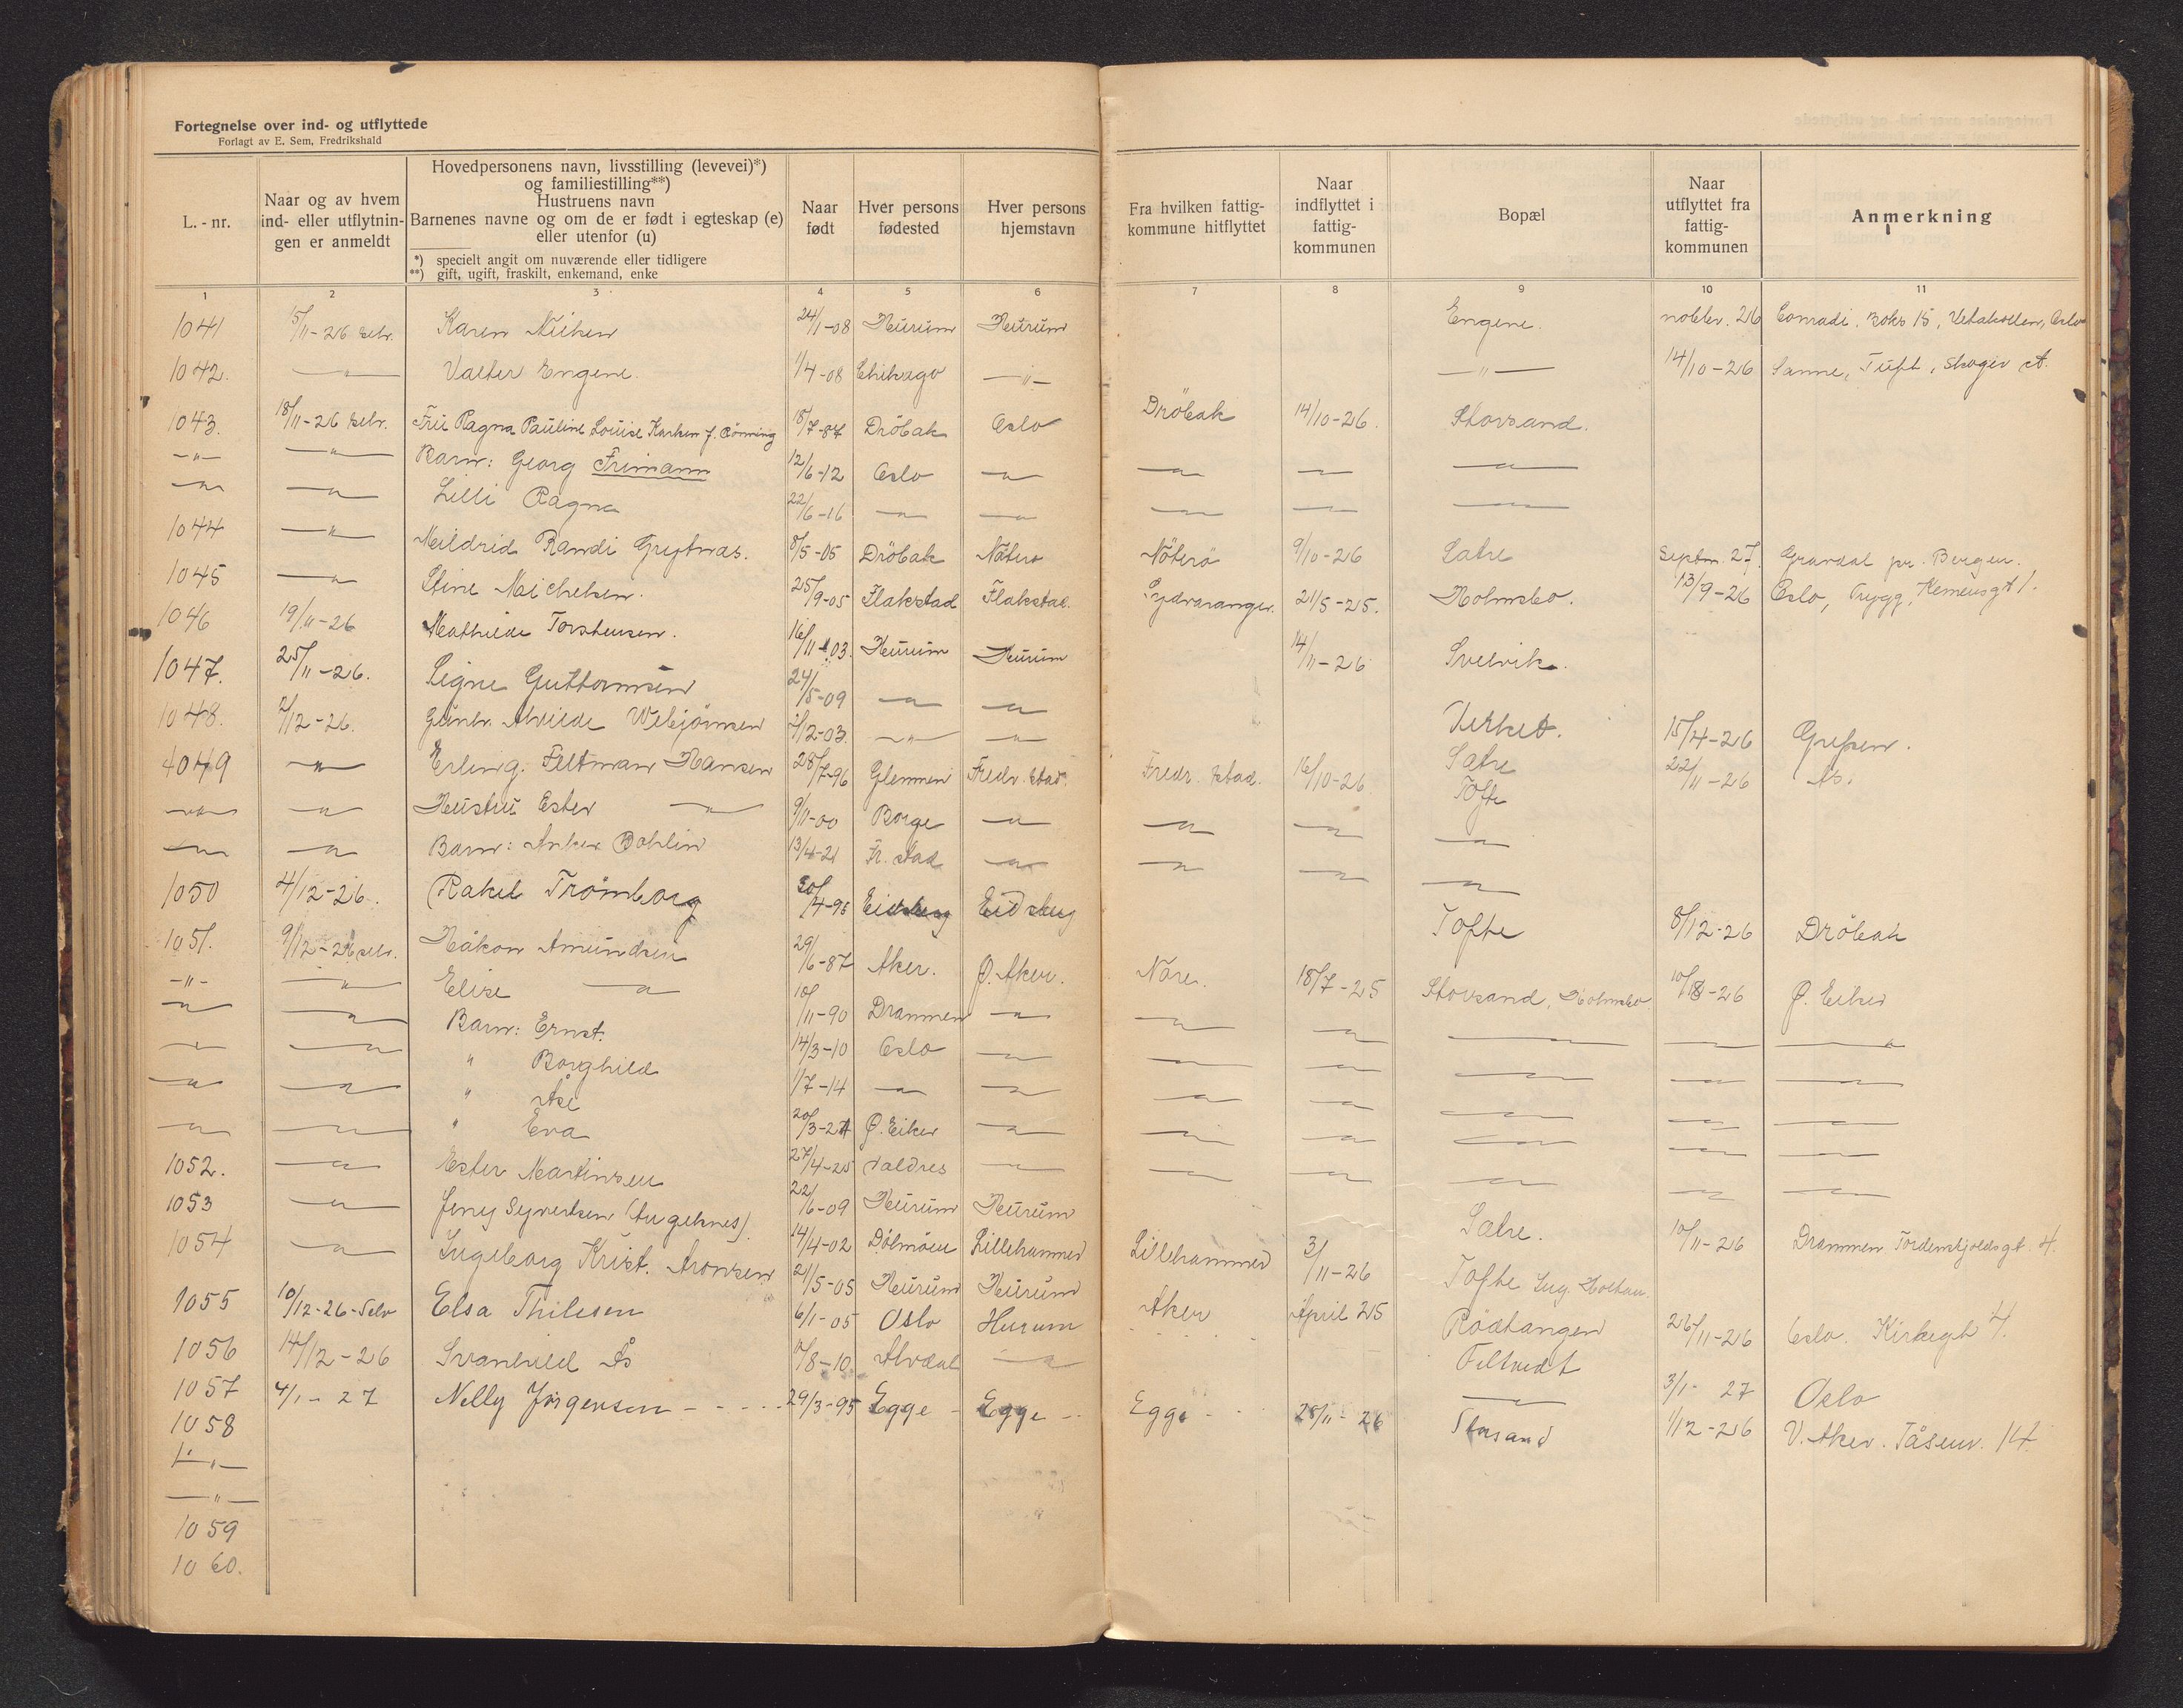 Fortegnelse over ind- og utflyttede
Forlagt av E. Sem, Fredrikshald
L. - nr.
Naar og av hvem ind- eller utflytnin-gen er anmeldt
Hovedpersonens navn, livsstilling (levevei)*)
og familiestilling**)
Hustruens navn
Barnenes navne og om de er født i egteskap (e)
eller utenfor (u)
*) specielt angit om nuværende eller tidligere
**) gift, ugift, fraskilt, enkemand, enke
Naar født
Hver persons fødested
Hver persons hjemstavn
Fra hvilken fattig-kommune hitflyttet
Naar indflyttet i fattig-kommunen
Bopæl
Naar utflyttet fra fattig-kommunen
Anmerkning
1 2 3 4 5 6 7 8 9 10 11
1041 15/11-26 selv. Karen 24/1-08 Hurum Hurum Engene. 26 Conradi. Boks 15, Oslo
1042. —"— Valter Engene. 1/4-08 Chikago —"— —"— 14/10-26 Sanne, Tuft, Skoger st.
1043. 18/11-26 selv. Fru Ragna Pauline Louise Karlsen f. Rönning 18/7-87 Dröbak Oslo Dröbak 14/10-26. Storsand.
—"— —"— Barn: Georg Frimann 12/6-12 Oslo —"— —"— —"— —"—
—"— —"— Lilli Ragna 22/6-16 —"— —"— —"— —"— —"—
1044 —"— Mildrid Randi Grytnæs. 8/5-05 Dröbak Nöterö Nöterö 9/10-26 Sætre Septm. 27. Gravdal pr. Bergen.
1045 —"— Stine Michelsen. 25/9-05 Flakstad Flakstad. Sydvaranger. 21/5-25. Holmsbo. 13/9-26 Oslo, Trygg,
1046 19/11-26 Mathilde Torstensen. 16/11-03. Hurum Hurum 14/11-26 Svelvik.
1047. 25/11-26. Signe Guttormsen 24/5-09 —"— —"— Verket. 15/4-26 Grefsen.
1048. 2/12-26. Gunh. Alvilde Webjörnsen 2/12-03. —"— —"— Sætre 22/11-26 Ås.
1049 —"— Erling. Feltman Hansen 28/7-96 Glemmen Fredr. stad. Fredr. stad. 16/10-26 Tofte
—"— —"— Hustru Ester —"— 9/11-00 Borge —"— —"— —"— —"—
—"— —"— Barn: Anker Bohlin 13/4-21 Fr. stad —"— —"— —"— —"—
1050 4/12-26. Rakel Trömborg 30/4-95 Eidsberg Eidsberg Tofte 8/12-26 Dröbak
1051. 9/12-26 selv. Håkon Amundsen 29/6-87 Aker. Ø. Aker. Nore. 18/7-25 Storsand, Holmsbo 10/12-26 Ø. Eiker
—"— —"— Elise —"— 10/11-90 Drammen —"— —"— —"— —"— —"— —"—
—"— —"— Barn: Ernst. 14/3-10 Oslo —"— —"— —"— —"— —"— —"—
—"— —"— " Borghild 1/7-14 —"— —"— —"— —"— —"— —"— —"—
—"— —"— " Åse 20/3-21 Ø. Eiker —"— —"— —"— —"— —"— —"—
—"— —"— " Eva 27/4-25 Valdres —"— —"— —"— —"— —"— —"—
1052. —"— Ester Martinsen 22/6-09 Hurum Hurum Sætre. 10/11-26 Drammen Tordenskjoldsgt. 4.
1053 —"— Jeny Syvertsen 14/4-02 Lillehammer Lillehammer 3/11-26 Tofte
1054 —"— Ingeborg Krist. Aronsen 21/5-05 Hurum Hurum Aker April 25 Rödtangen 26/11-26 Oslo. Kirkegt 4.
1055 10/12-26-Selv Elsa Thilesen 6/1-05 Oslo Hurum Filtvedt 3/1- 27 Oslo
1056 14/12-26 Svanhild Ås /8-10 Alvdal —"— —"— 1/12-26 V. Aker. Tåsenv. 14.
1057 4/1-27 Nelly Jörgensen 29/3-95 Egge Egge Egge 28/11-26 Storsand
1058
—"—
—"—
1059
1060.